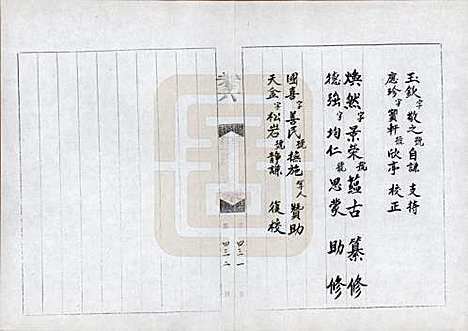 玉欽字敬之號自謙 支持
應珍字寶軒號欣亭 校正
煥然字景榮號蘊古 纂修
德強字均仁號思蒙 助修
國喜字善民號撫施 贊助
天金字松岩號靜謙 復校
四三一
四三二